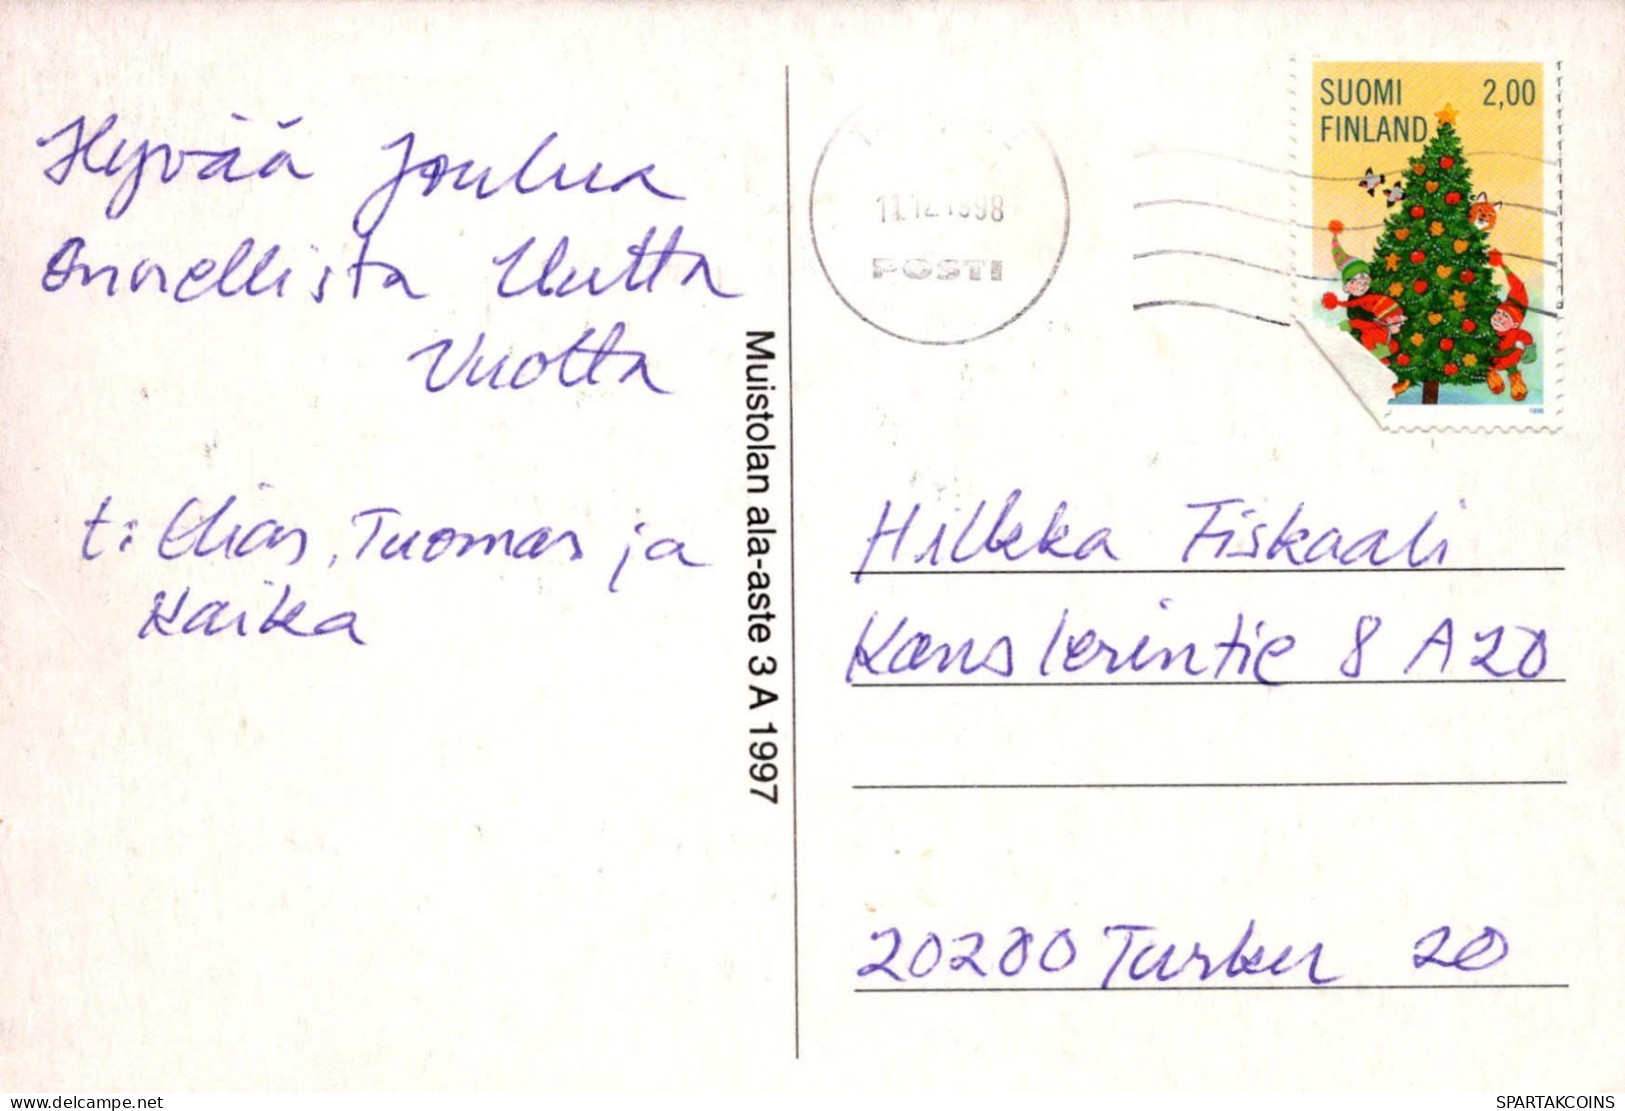 Hyvää Joulua
Onnellista Uutta
Vuotta
t: Elias, Tuomas ja
Kaika
Muistolan ala-aste 3 A 1997
11.12.1998
POSTI
SUOMI 2,00
FINLAND
Hilkka Fiskaali
Kanslerintie 8 A 20
20200 Turku 20
delcampe.net
SPARTAKCOINS